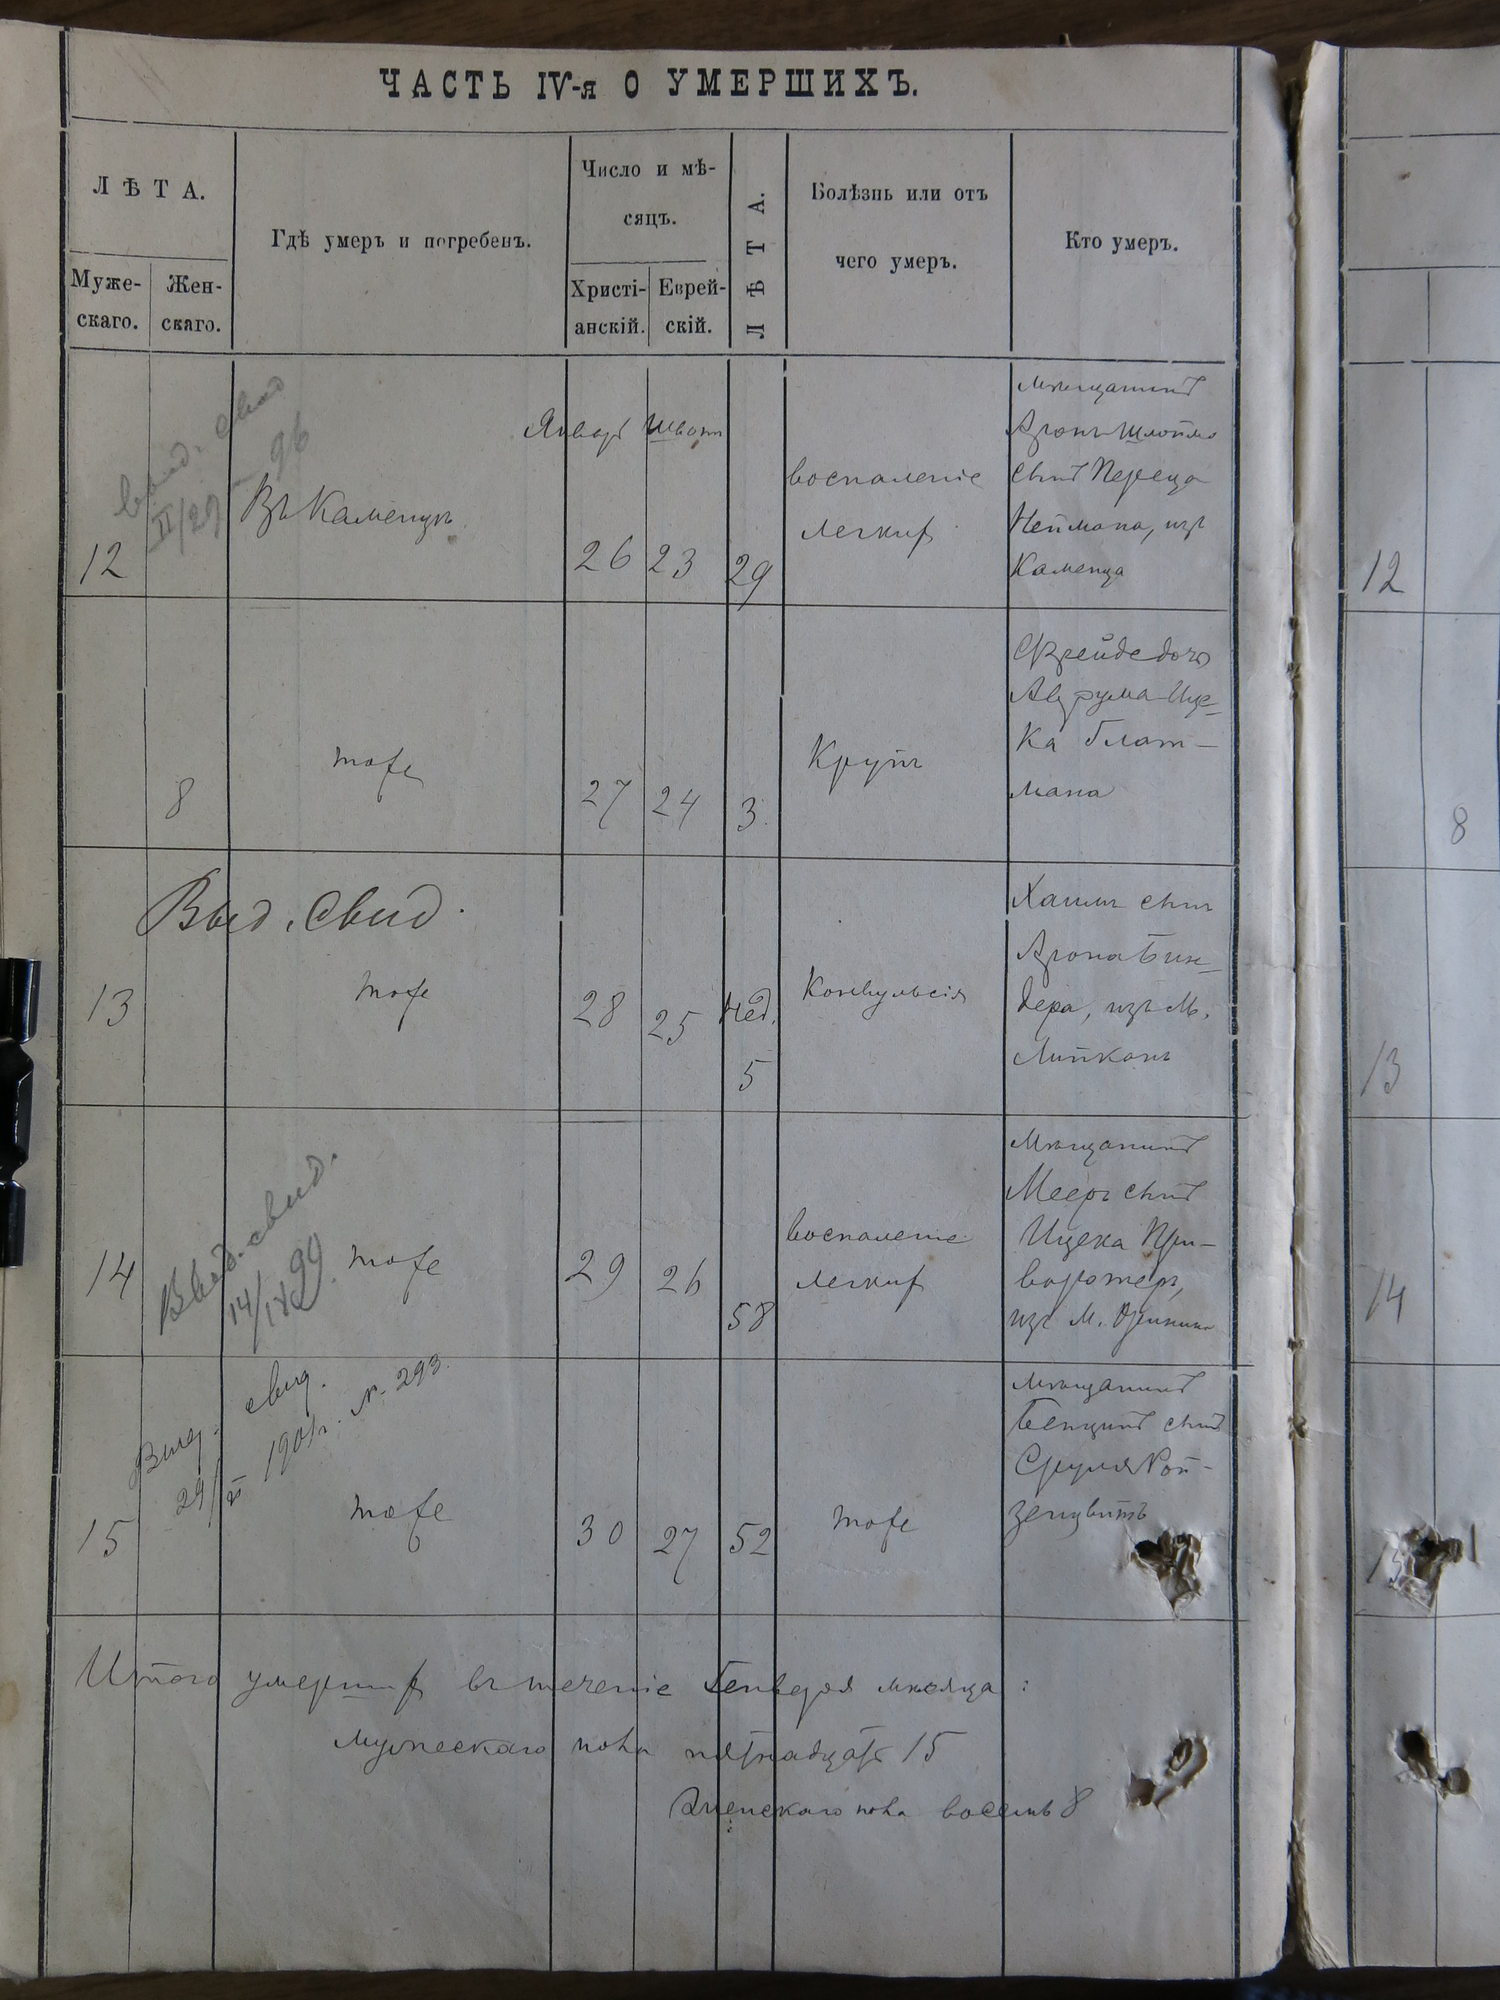 ЧАСТЬ IV-я О УМЕРШИХЪ.
ЛѢТА.
Муже-
скаго.
Жен-
скаго.
Гдѣ умеръ и погребенъ.
Число и мѣ-
сяцъ.
Христі-
анскій.
Еврей-
скій.
ЛѢТА.
Болѣзнь или отъ
чего умеръ.
Кто умеръ.
12
выд. свид
II/29 - 96
Въ Каменцѣ
Январь
26
Шватъ
23
29
воспаленіе
легкихъ
мѣщанинъ
Аронъ-Шлойма
сынъ Переца
Неймана, изъ
Каменца
12
8
тоже
27
24
3
Крупъ
Фрейде дочь
Аврума-Ице-
ка Глат-
мана
8
Выд. Свид.
13
тоже
28
25
Нед.
5
Конвульсія
Хаимъ сынъ
Арона Бин-
дера, изъ м.
Липканъ
13
Выд. свид.
14
тоже
29
26
58
воспаленіе
легкихъ
Мѣщанинъ
Мееръ сынъ
Ицека При-
воротеръ,
изъ м. Оринина
14
Выд. свид.
29/VI 1901 г. N. 293.
15
тоже
30
27
52
тоже
мѣщанинъ
Бенционъ сынъ
Сруля Рой-
зенцвитъ
15
Итого умершихъ въ теченіе Генваря мѣсяца:
мужескаго пола пятнадцать 15
Женскаго пола восемь 8